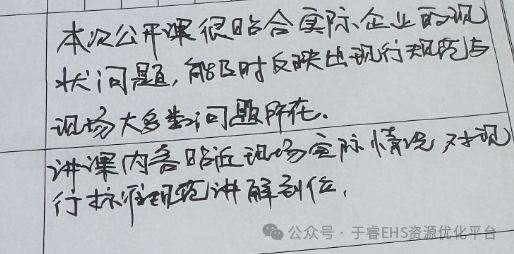 本次公开课很贴合实际企业的现
状问题，能及时反映出现行规范与
现场大多数问题所在.
讲课内容贴近现场实际情况,对现
行标准规范讲解到位,
公众号·于睿EHS资源优化平台